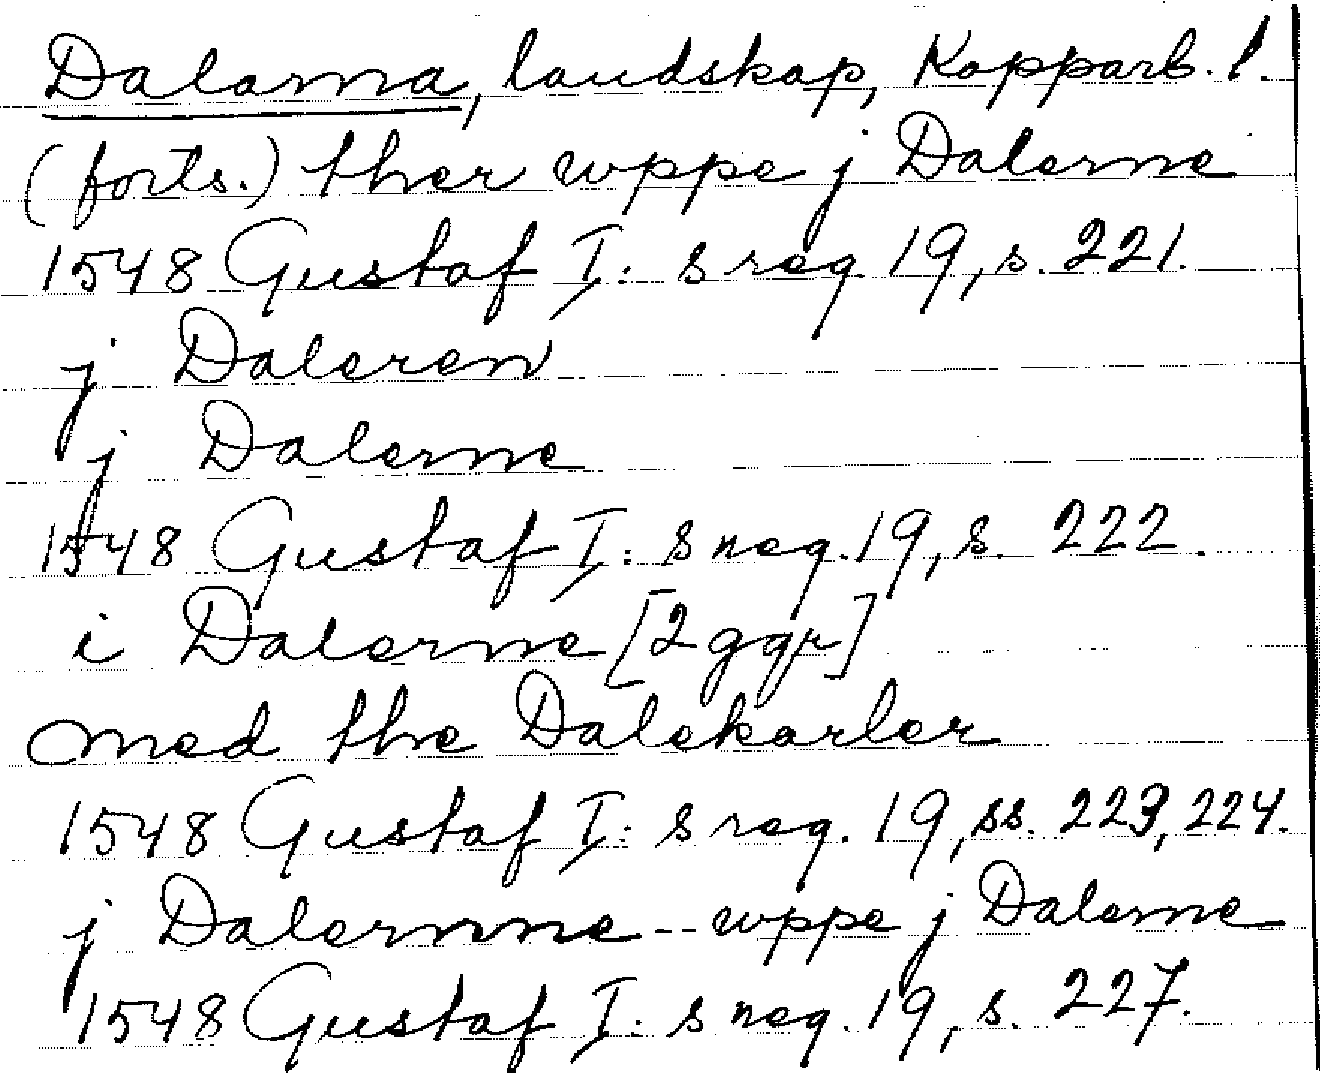 Dalarna, landskap, Kopparb. l.
(forts.) ther wppe j Dalerne
1548 Gustaf I: s reg 19, s. 221.
j Daleren
j Dalerne
1548 Gustaf I: s reg. 19, s. 222.
i Dalerne [2 ggr]
med the Dalekarler
1548 Gustaf I: s reg. 19, ss. 223, 224.
j Dalernne -- wppe j Dalerne
1548 Gustaf I: s reg. 19, s. 227.